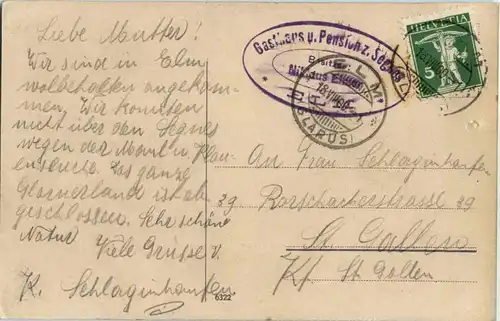 Liebe Mutter!
Wir sind in Elm
wolbehalten angekom-
men, Wir konnten
nicht über den Segnes
wegen der Maul u. Klau-
enseuche. Das ganze
Glarnerland ist ab
geschlossen. Sehr schöne
Natur
Viele Grüsse v.
K. Schlaginhaufen
Gasthaus u. Pension z. Segnes
Besitzer:
Elmer
ELM
18.VIII.
(GLARUS)
HELVETIA
5
An Frau Schlaginhaufen
29 Rorschacherstrasse 29
St. Gallen
Kt. St. Gallen
6322